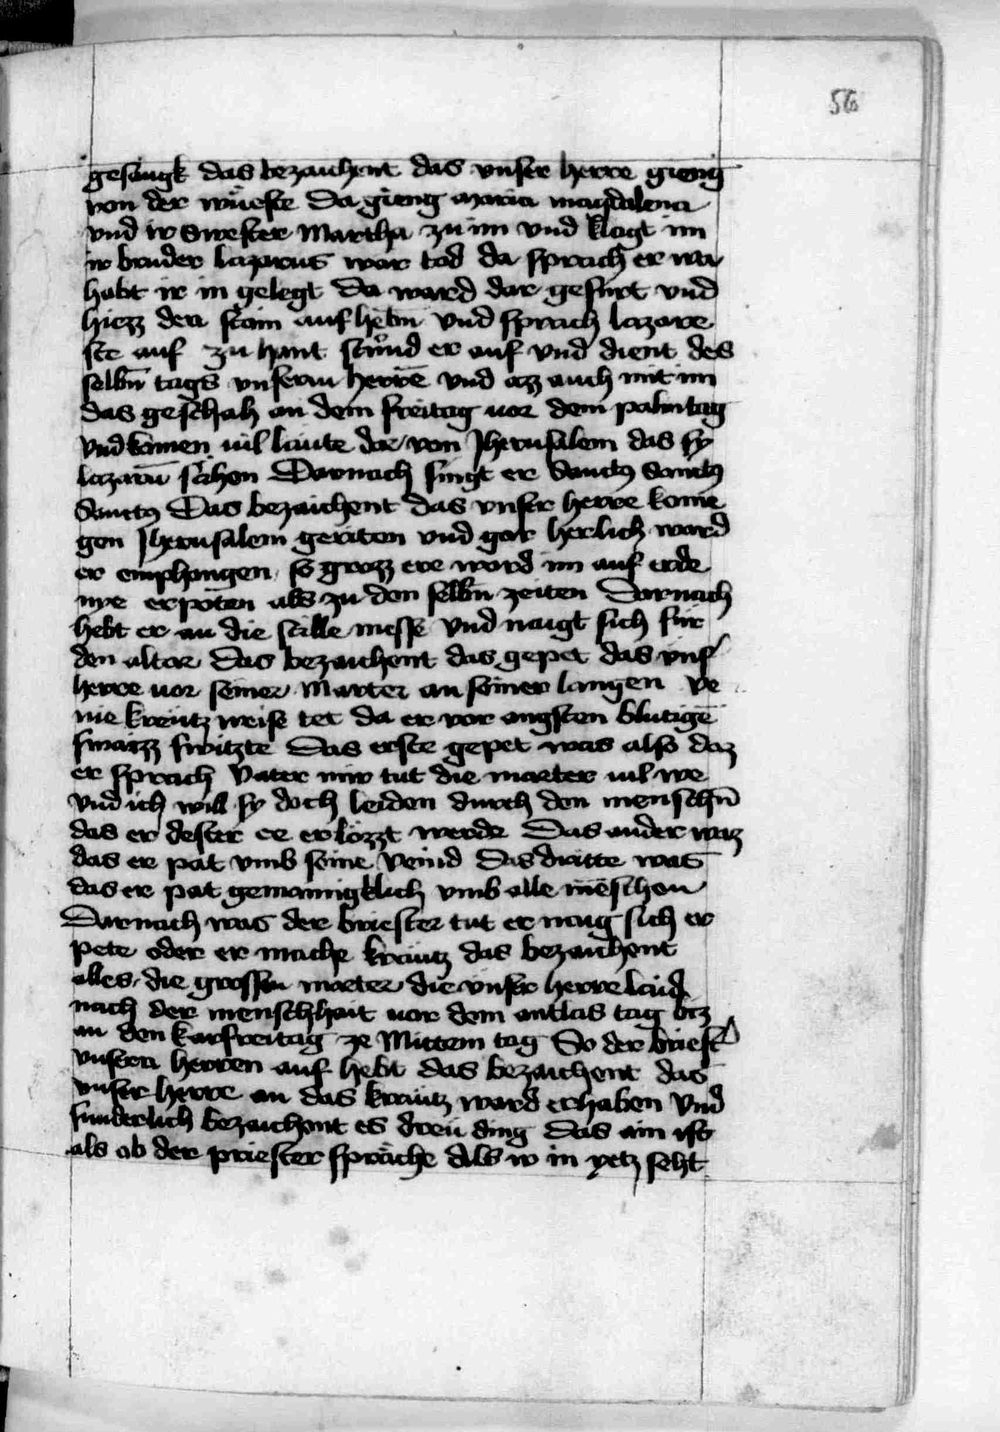 56
gesangk das bezaichent das vnser herre gieng
von der wüeste Da gieng maria magdalena
vnd ir swester Martha zu im vnd klagt im
ir bruder lazarus war tod da sprach er wa
habt ir in gelegt Da ward dar gefürt vnd
hiezz den stain auf hebn vnd sprach lazare
ste auf zu hant stůnd er auf vnd dient des
selbn̄ tags vnserm herrē vnd azz auch mit im
das geschah an dem freitag uor dem palmtag
vnd komen uil läute dar von Jherusalem das sy
lazarū sahen Darnach singt er Sanctus Sanctus
Sanctus Das bezaichent das vnser herre kome
gen Jherusalem geriten vnd gar herlich ward
er emphangen so grozz ere ward im auf erde
nye erpoten als zu den selbn̄ zeiten Darnach
hebt er an die stille messe vnd naigt sich für
den altar Das bezaichent das gepet das vnser
herre uor seiner Marter an seiner langen ve
nie kreütz weise tet da er vor angsten blutigē
swaizz switzte Das erste gepet was also daz
er sprach Vater mir tut die marter uil we
vnd ich will sy doch leiden durch den menschn̄
das er dester ee erlözzt werde Das ander waz
das er pat vmb seine veind Das dritte was
das er pat gemainigklich vmb alle mēschen
Darnach was der briester tut er naig sich er
pete oder er mache kräutz das bezaichent
alles die grossen marter die vnser herre laid
nach der menschhait uor dem antlas tag biz
an den karfreitag ze Mittem tag So der briester
vnsern herren auf hebt das bezaichent das
vnser herre an das kräutz ward erhaben Vnd
sunderlich bezaichent es dreü ding Das ain ist
als ob der priester spräche Als ir in yetz seht